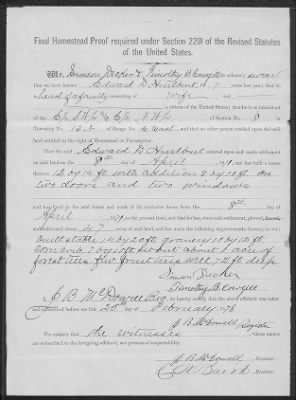 Final Homestead Proof required under Section 2291 of the Revised Statutes
of the United States.
We Simeon Decker & Timothy B Cowgill do solemnly swear
that we have known Edward D. Hurlbut for 7 years last past; that he
head of a family consisting of wife
a citizen of the United States; that he is an inhabitant
of the E½ S.W.¼ & E½ N.W.¼ of Section No. 8 in
Township No. of Range No. 6 East and that no other person resided upon the said land
entitled to the right of Homestead or Pre-emption.
That the said Edward D. Hurlbut entered upon and made settlement
on said land on the 8th day of April 1871, and has built a house
thereon 12 by 14 ft with addition 8 by 10 ft
two doors and two windows
and has lived in the said house and made it his exclusive home from the 8th day of
April 1871 to the present time, and that he has, since said settlement, plowed,
cultivated about 47 acres of said land, and has made the following improvements thereon, to wit:
built stable 14 by 20 ft granary 10 by 12 ft.
about 1 acre of
forest trees few fruit trees well 72 ft deep
Simeon Decker
Timothy B Cowgill
I, J B McDowell Reg do hereby certify that the above affidavit was taken
and subscribed before me this 23 day of February 1878
J B McDowell Register
We certify that the witnesses whose names
are subscribed to the foregoing affidavit, are persons of respectability.
J B McDowell, Register.
, Receiver.